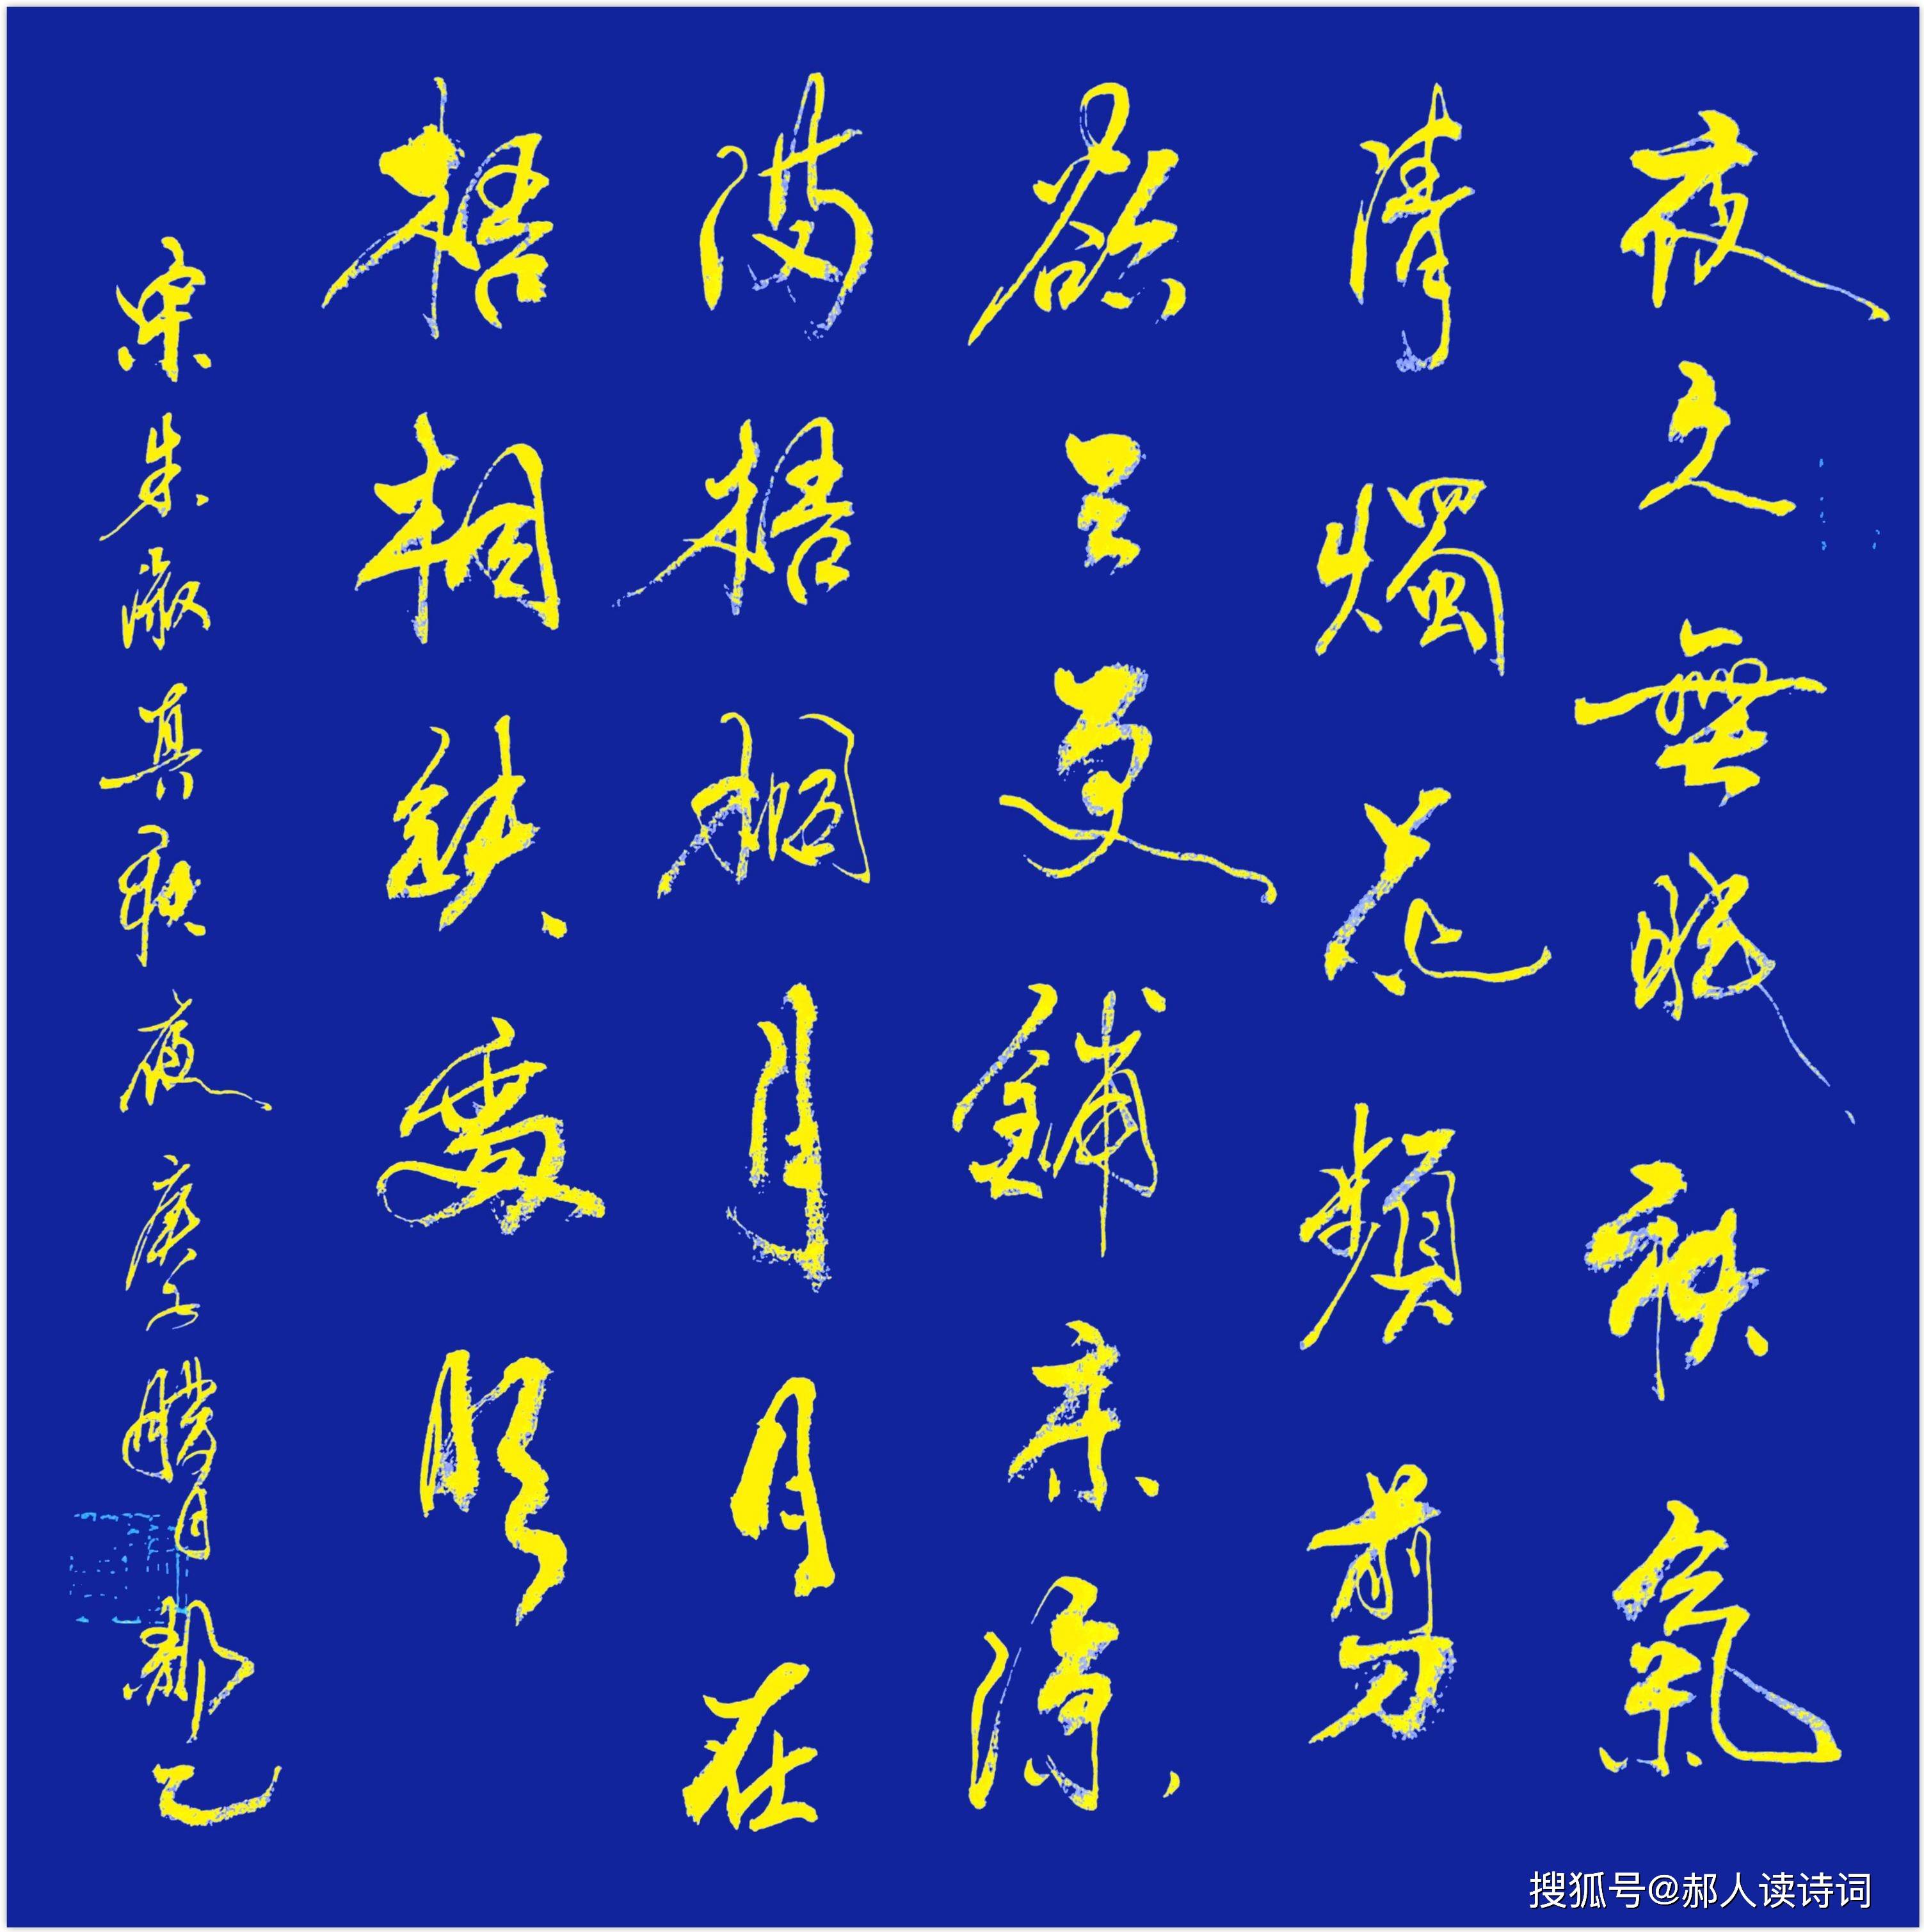 夜久無眠秋氣
清燭花頻剪
欲三更鋪床涼
滿梧桐月月在
梧桐缺處明
宋朱淑真秋夜庚子臘月郝
搜狐号@郝人读诗词